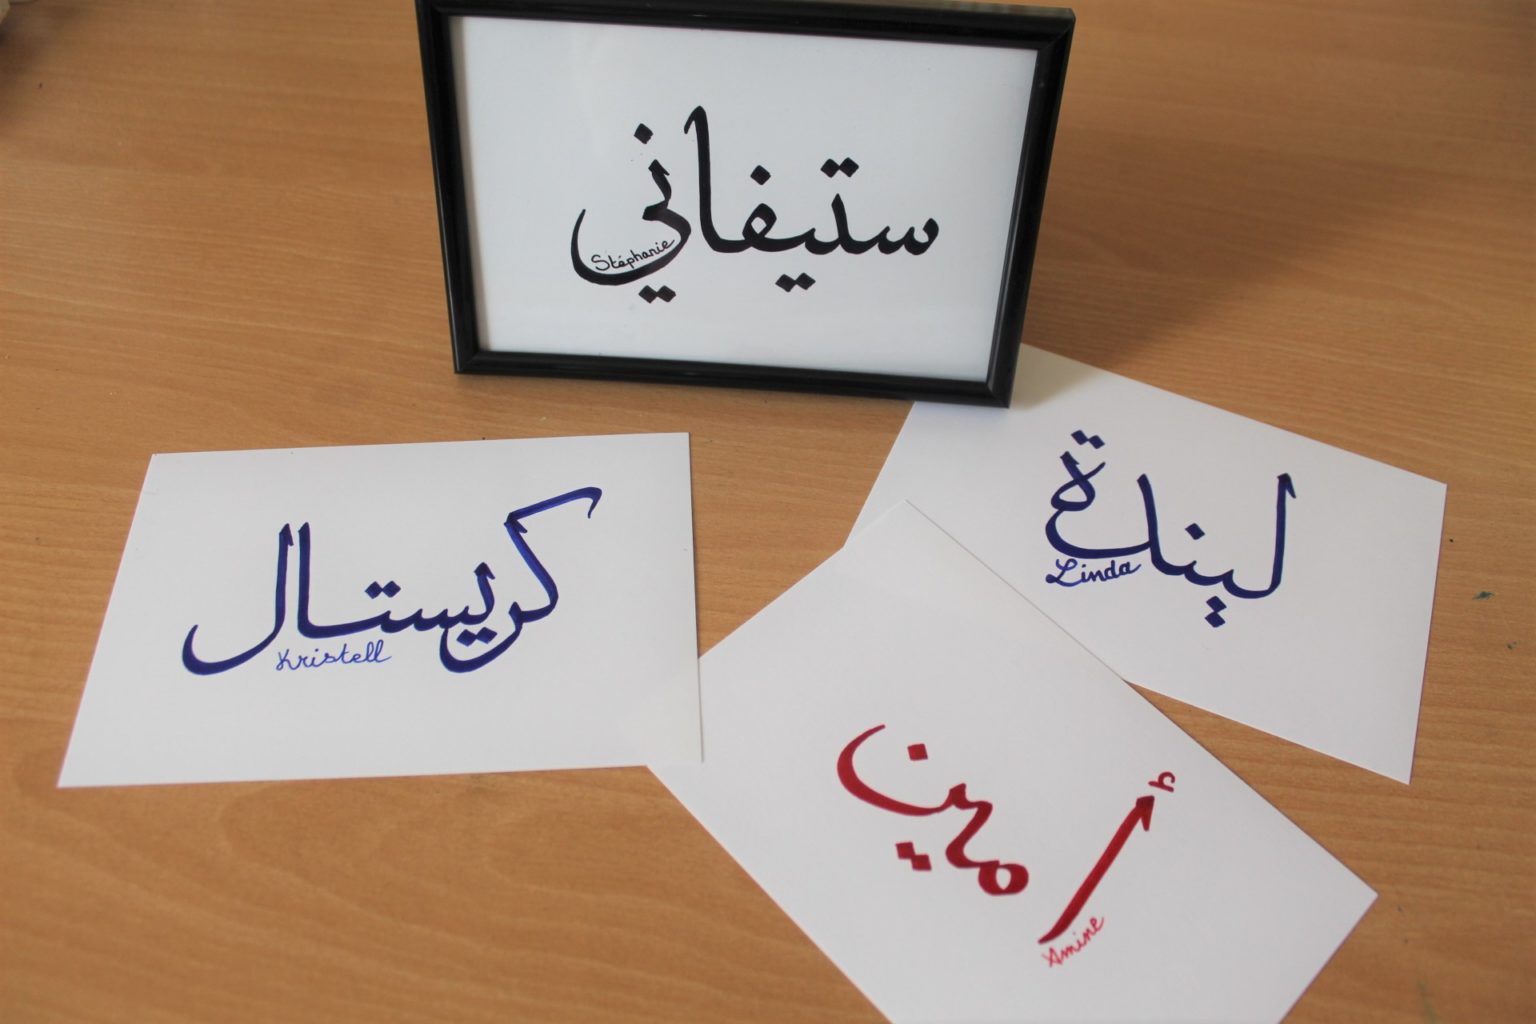 ستيفاني
Stéphanie
كريستال
Kristell
ليندة
Linda
أمين
Amine